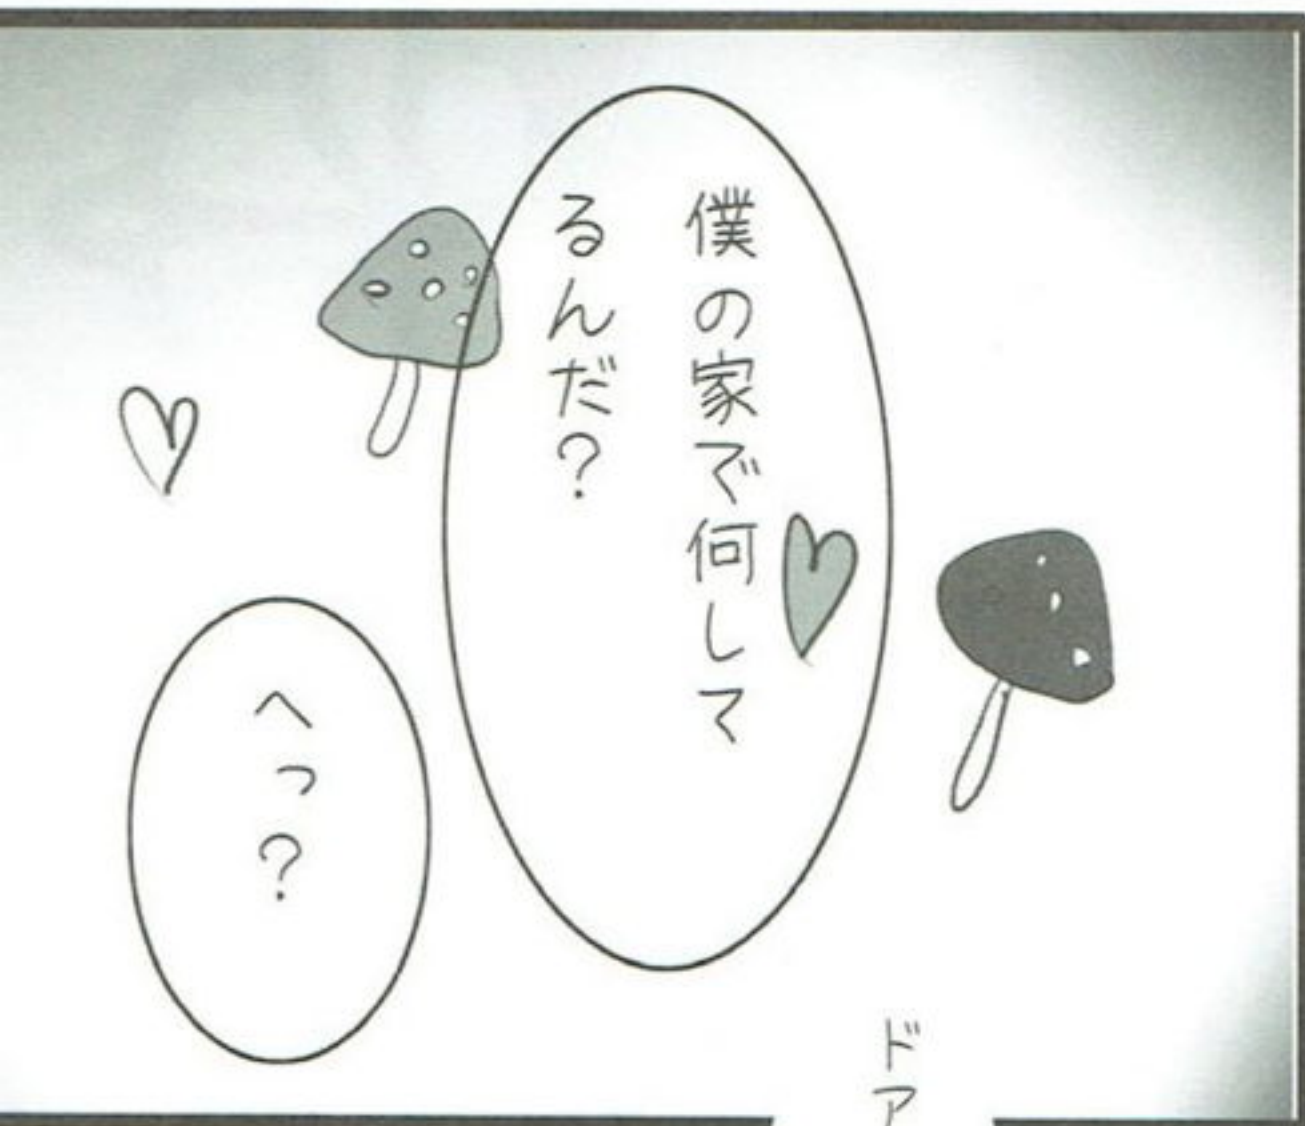 僕の家で何して
るんだ?
へっ?
ドア